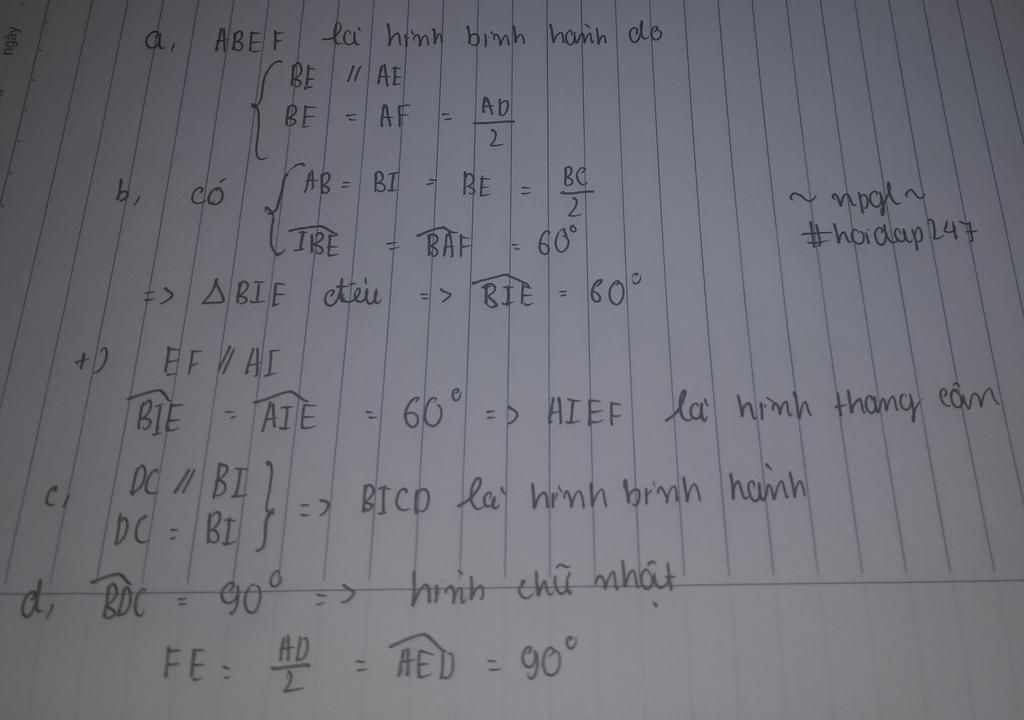 ngày
a, ABEF là hình bình hành do
{ BE // AE
BE = AF = AD/2
b, có { AB = BI = BE = BC/2
IBE = BAF = 60°
=> Δ BIE đều => BIE = 60°
~ npgl ~
#hoidap247
+) EF // AI
BIE = AIE = 60° => AIEF là hình thang cân
c, DC // BI
DC = BI } => BICD là hình bình hành
d, BDC = 90° => hình chữ nhật
FE = AD/2 = AED = 90°